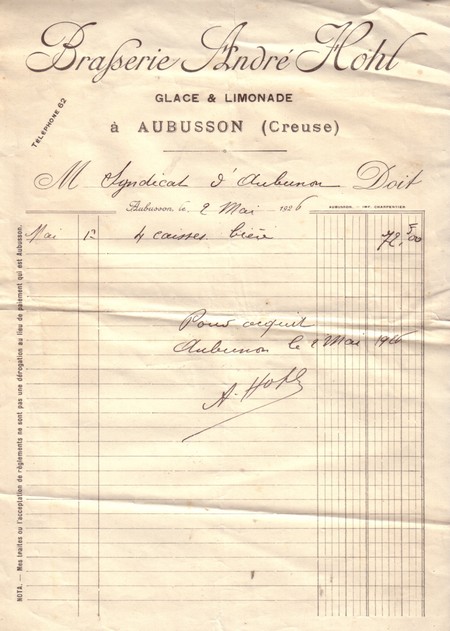 Brasserie André Hohl
GLACE & LIMONADE
TÉLÉPHONE 62
à AUBUSSON (Creuse)
M Syndicat d'Aubusson Doit
Aubusson, le 2 Mai 1926
AUBUSSON. — IMP. CHARPENTIER
Mai 1er 4 caisses bière 72,00
Pour acquit
Aubusson le 2 Mai 1926
A. Hohl
NOTA. — Mes traites ou l'acceptation de règlements ne sont pas une dérogation au lieu de paiement qui est Aubusson.